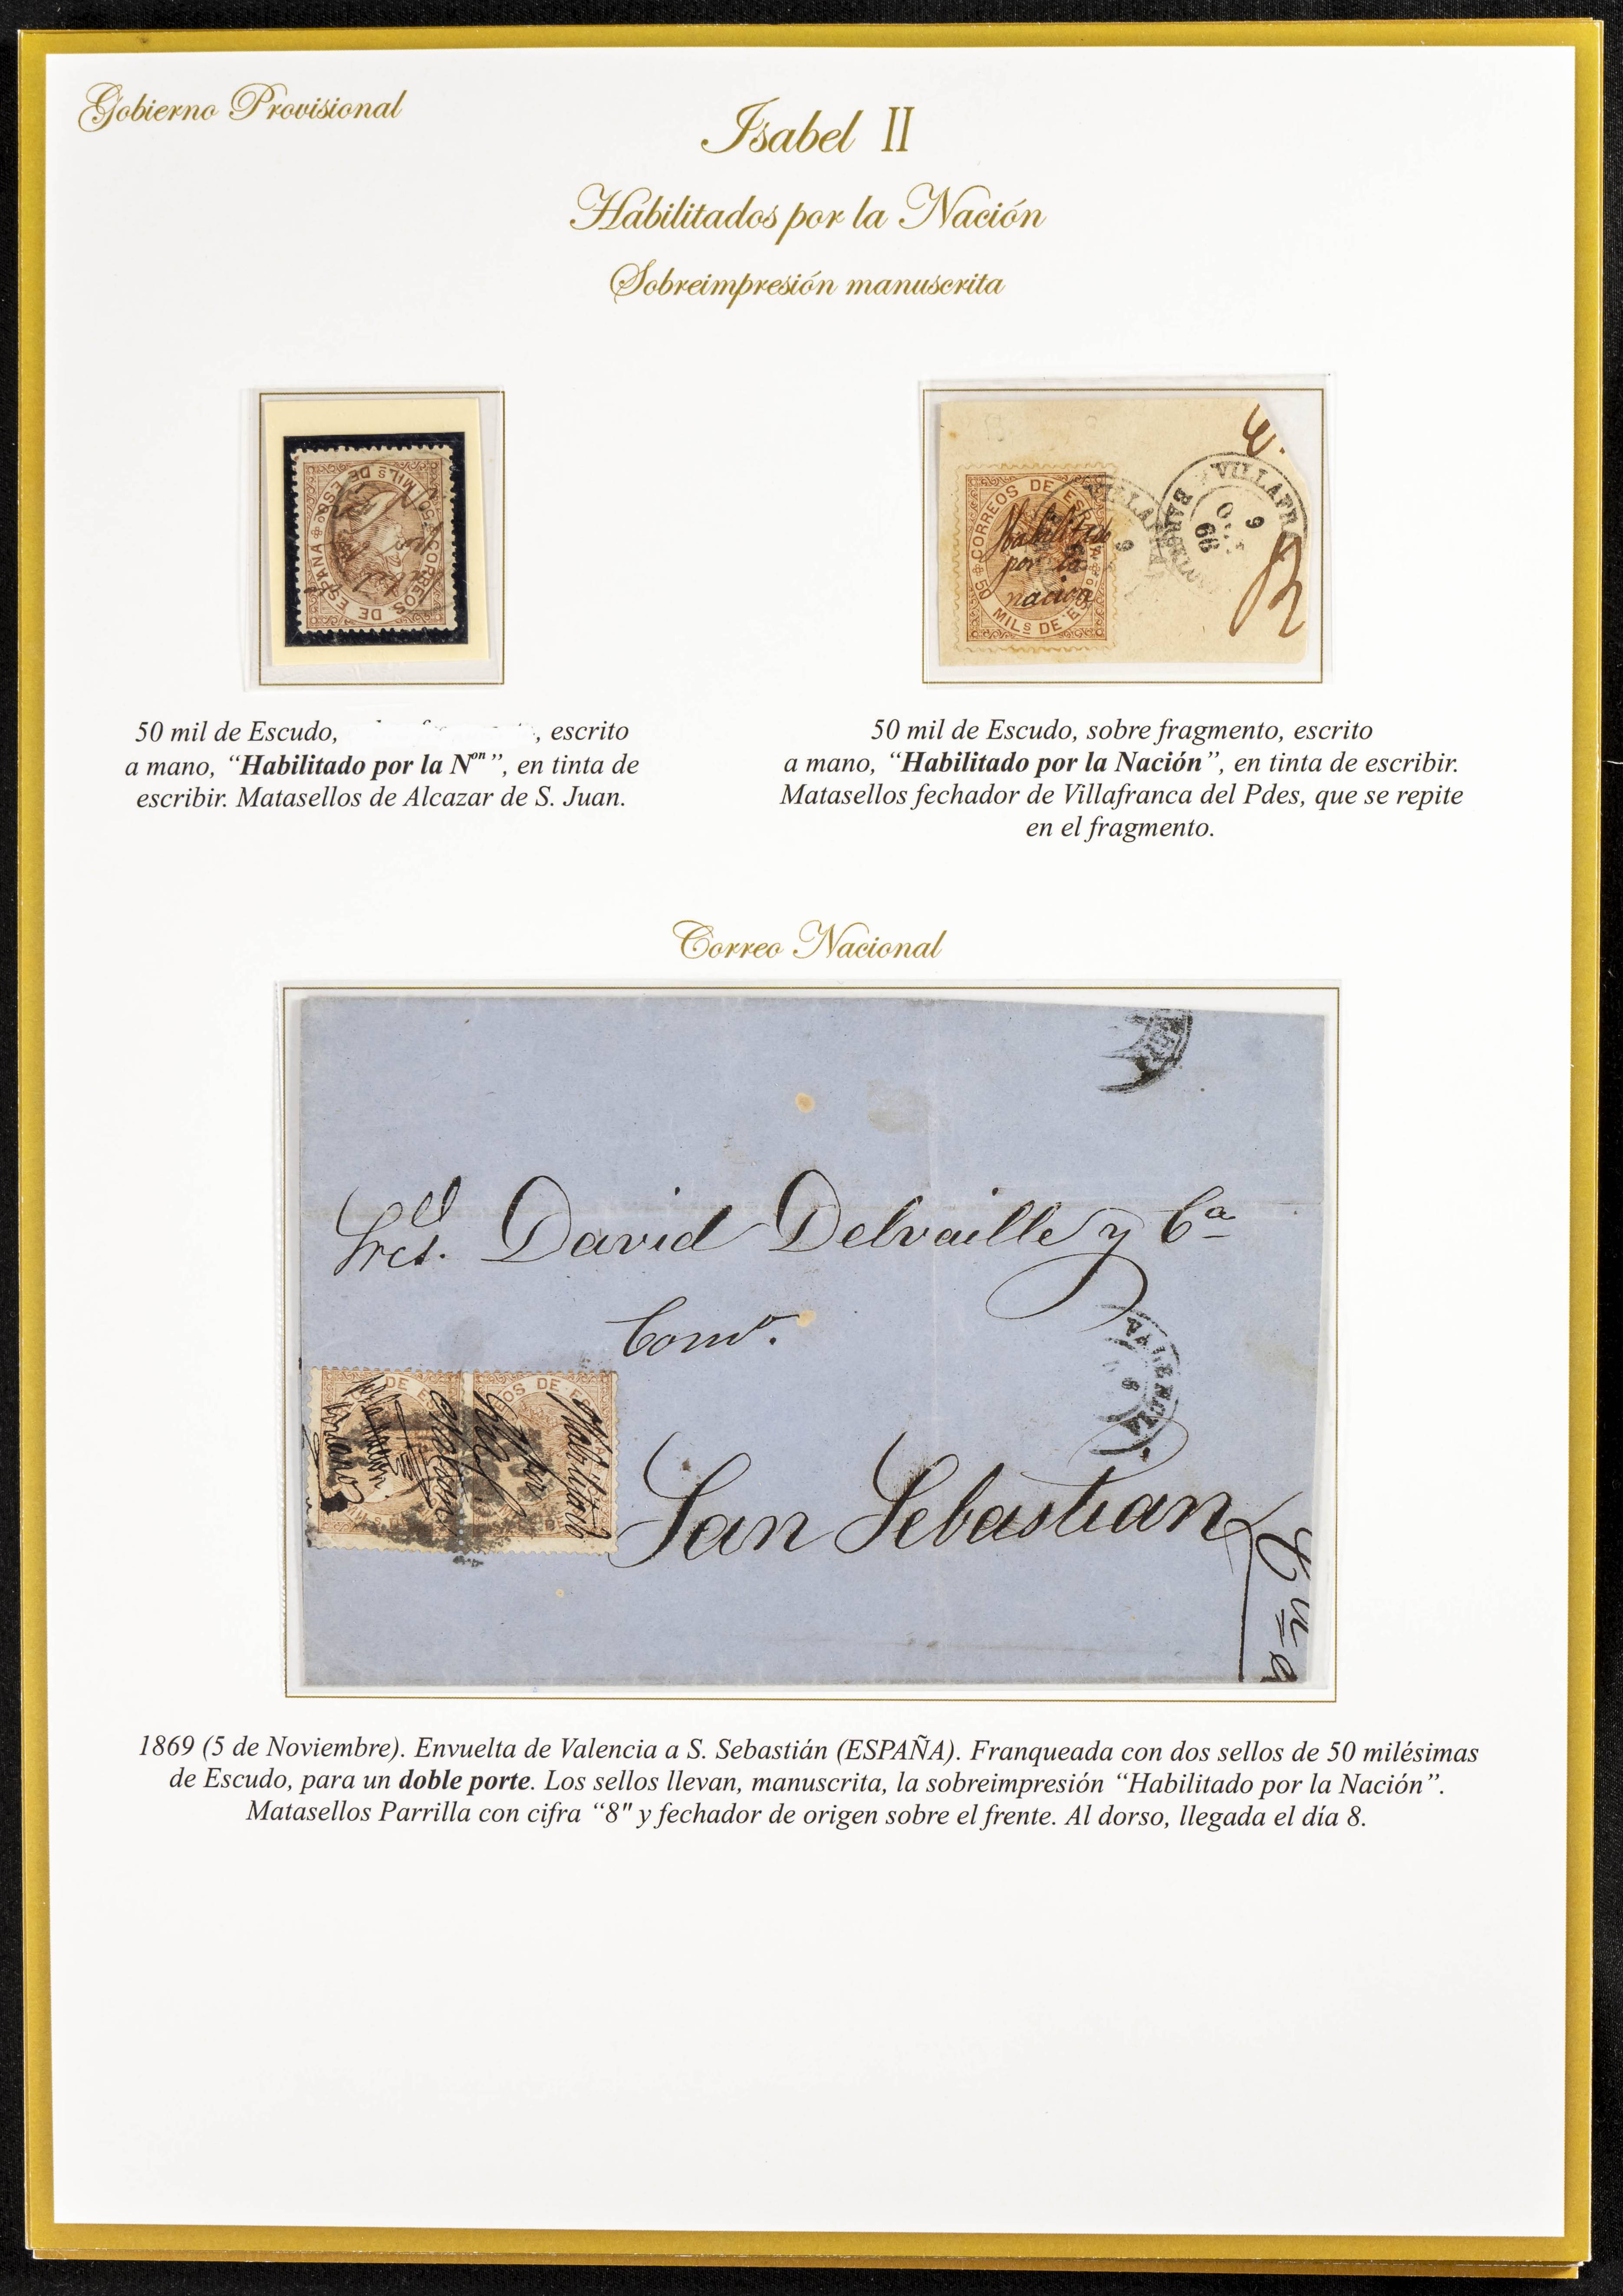 Gobierno Provisional
Isabel II
Habilitados por la Nación
Sobreimpresión manuscrita
CORREOS DE ESPAÑA
MILs DE ESO
CORREOS DE ESPAÑA
50 MILs DE ES
Habilitado
por la
nacion
VILLAFR
BAR
9
69
50 mil de Escudo, , escrito
a mano, “Habilitado por la Non”, en tinta de
escribir. Matasellos de Alcazar de S. Juan.
50 mil de Escudo, sobre fragmento, escrito
a mano, “Habilitado por la Nación”, en tinta de escribir.
Matasellos fechador de Villafranca del Pdes, que se repite
en el fragmento.
Correo Nacional
Sres. David Delvaille y Ca
Como.
VALENCIA
San Sebastian
Habilitado
por
1869 (5 de Noviembre). Envuelta de Valencia a S. Sebastián (ESPAÑA). Franqueada con dos sellos de 50 milésimas
de Escudo, para un doble porte. Los sellos llevan, manuscrita, la sobreimpresión “Habilitado por la Nación”.
Matasellos Parrilla con cifra “8" y fechador de origen sobre el frente. Al dorso, llegada el día 8.